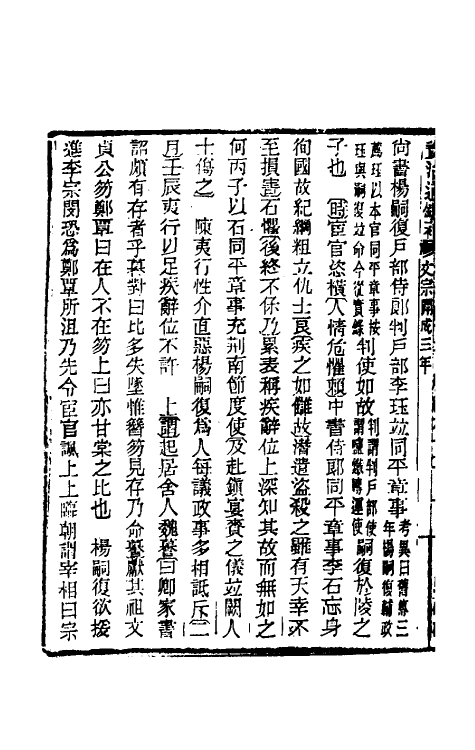 資治通鑑補 文宗開成三年
尚書楊嗣復戶部侍郎判戶部李珏竝同平章事考異曰舊傳三年楊嗣復輔政
薦珏以本官同平章事按珏與嗣復竝命今從實錄判使如故判謂判戶部使謂鹽鐵轉運使嗣復於陵之
子也 時宦官恣橫人情危懼賴中書侍郎同平章事李石忘身
徇國故紀綱粗立仇士良疾之如讎故潛遣盜殺之雖有天幸不
至損壽石懼後終不保乃累表稱疾辭位上深知其故而無如之
何丙子以石同平章事充荆南節度使及赴鎮宴賚之儀竝闕人
士傷之 陳夷行性介直惡楊嗣復爲人每議政事多相詆斥二
月壬辰夷行以足疾辭位不許 上謂起居舍人魏謩曰卿家書
詔頗有存者乎謩對曰比多失墜惟簪笏見存乃命謩獻其祖文
貞公笏鄭覃曰在人不在笏上曰亦甘棠之比也 楊嗣復欲援
進李宗閔恐爲鄭覃所沮乃先令宦官諷上上臨朝謂宰相曰宗